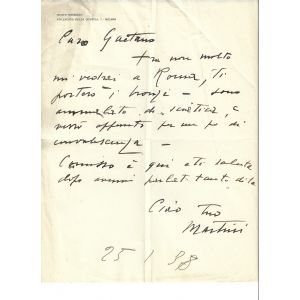 Caro Gaetano
fra non molto
mi vedrai a Roma, ti
porterò i bronzi – sono
ammalato di sciatica, e
verrò appunto per un po di
convalescenza –
è qui e ti saluta
dopo avermi parlato tanto di te
Ciao tuo
Martini
25 1